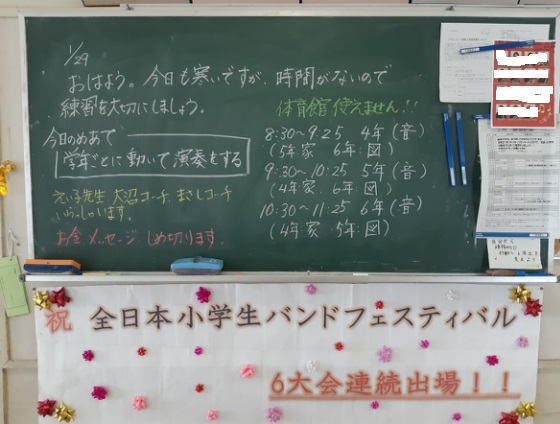 1/29
おはよう。今日も寒いですが、時間がないので
練習を大切にしましょう。
体育館使えません!!
今日のめあて
学年ごとに動いて演奏をする
大沼コーチ まさしコーチ
いらっしゃいます。
お金 メッセージ しめ切ります.
8:30~9:25 4年(音)
(5年:家 6年:図)
9:30~10:25 5年(音)
(4年:家 6年:図)
10:30~11:25 6年(音)
(4年:家 5年:図)
祝 全日本小学生バンドフェスティバル
6大会連続出場!!